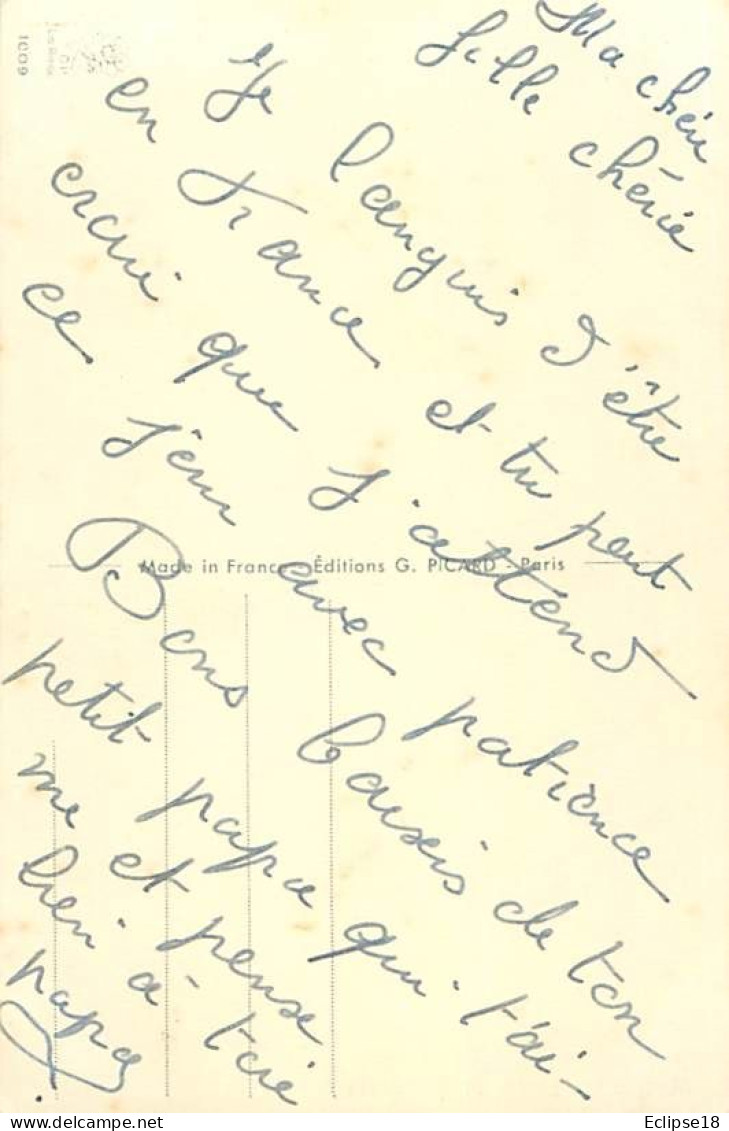 Ma chère
fille chérie
Je languis d'être
en France et tu peut
craire que j'attend
ce jour avec patience
Bons baisers de ton
petit papa qui t'ai-
me et pense
bien a toie
papa
Made in France - Éditions G. PICARD - Paris
1009
Eclipse18